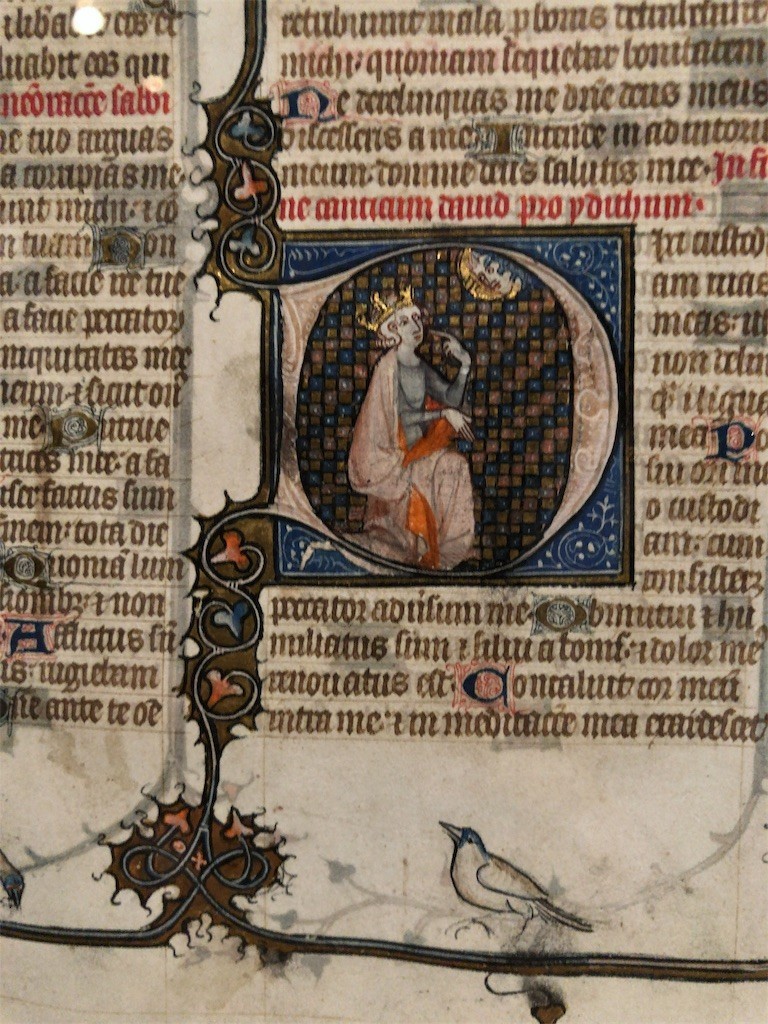 luabit eos qui
re tuo arguas
a corripias me
unt michi: ⁊ co
n tuam Non
a a facie ire tue
a facie peccatoꝝ
iniquitates mee
me Putrue
trices mee: a fa
iser factus sum
nem: tota die
Quoniā lum
⁊ non
Afflictus sū
s: rugiebam
ante te oē
retribuunt mala p bonis detrahebant
michi: quoniam sequebar bonitatem
Ne derelinquas me dñe deus meus
discesseris a me Intende in adiutoriū
meum: domine deus salutis mee: In fi
ne canticum dauid pro ydithum:
Ixi custod
am uias
meas: ut
non delin
quā ilingua
mea Po
sui ori me
o custodi
am: cum
consisteꝫ
peccator aduersum me: Obmutui ⁊ hu
miliatus sum ⁊ silui a bonis: ⁊ dolor meꝰ
renouatus est: Concaluit cor meū
intra me: ⁊ in meditacōe mea exardescet